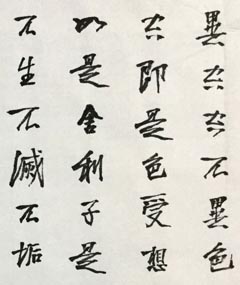 異空空不異色
空即是色受想
如是舍利子是
不生不滅不垢